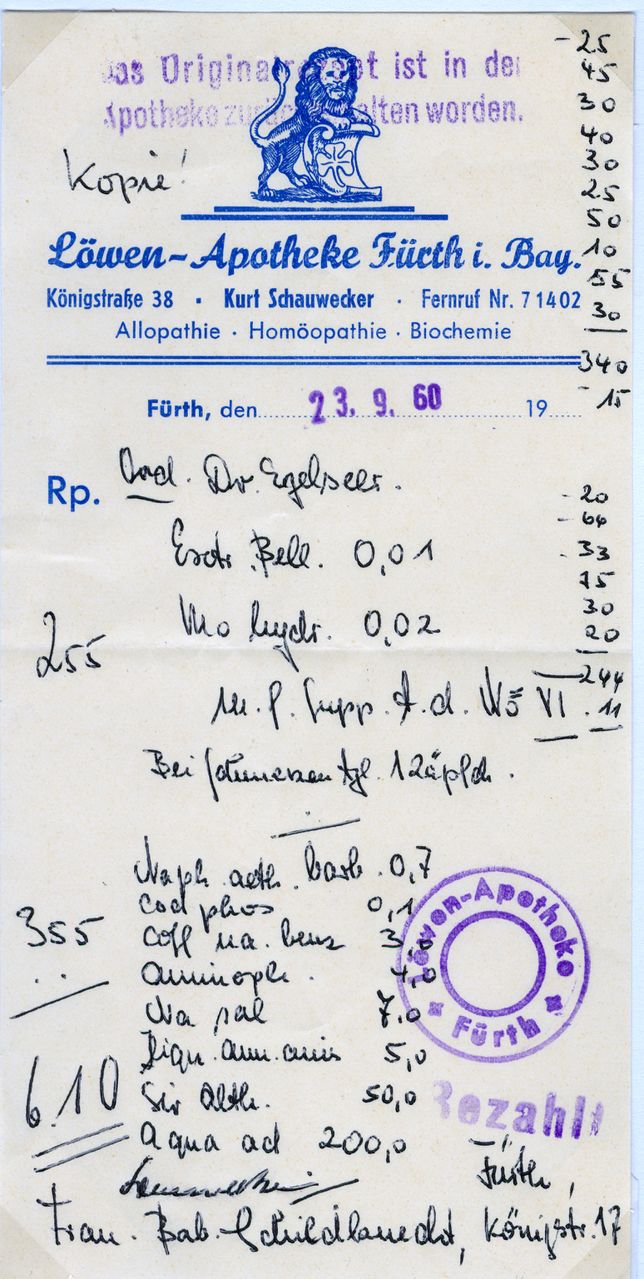 Das Originalrezept ist in der
Apotheke zurückbehalten worden.
Kopie!
Löwen-Apotheke Fürth i. Bay.
Königstraße 38 · Kurt Schauwecker · Fernruf Nr. 71402
Allopathie · Homöopathie · Biochemie
- 25
45
30
40
30
25
50
10
55
30
340
- 15
Fürth, den 23. 9. 60 19
Rp. Ord. Dr. Egelseer.
Extr. Bell. 0,01
Mo hydr. 0,02
255
m. f. Supp. t. d. No VI
- 20
- 66
- 33
75
30
20
244
. 11
Bei Schmerzen tgl. 1 Zäpfch.
Naph. aeth. barb. 0,7
Cod phos 0,1
355
Coff na. benz 3,0
Aminoph. 4,0
Na sal 7,0
Liqu. amm. anis 5,0
610
Sir Alth. 50,0
Aqua ad 200,0
Löwen-Apotheke
Fürth
Bezahlt
Fürth,
Frau. Bab. Schildknecht, Königstr. 17